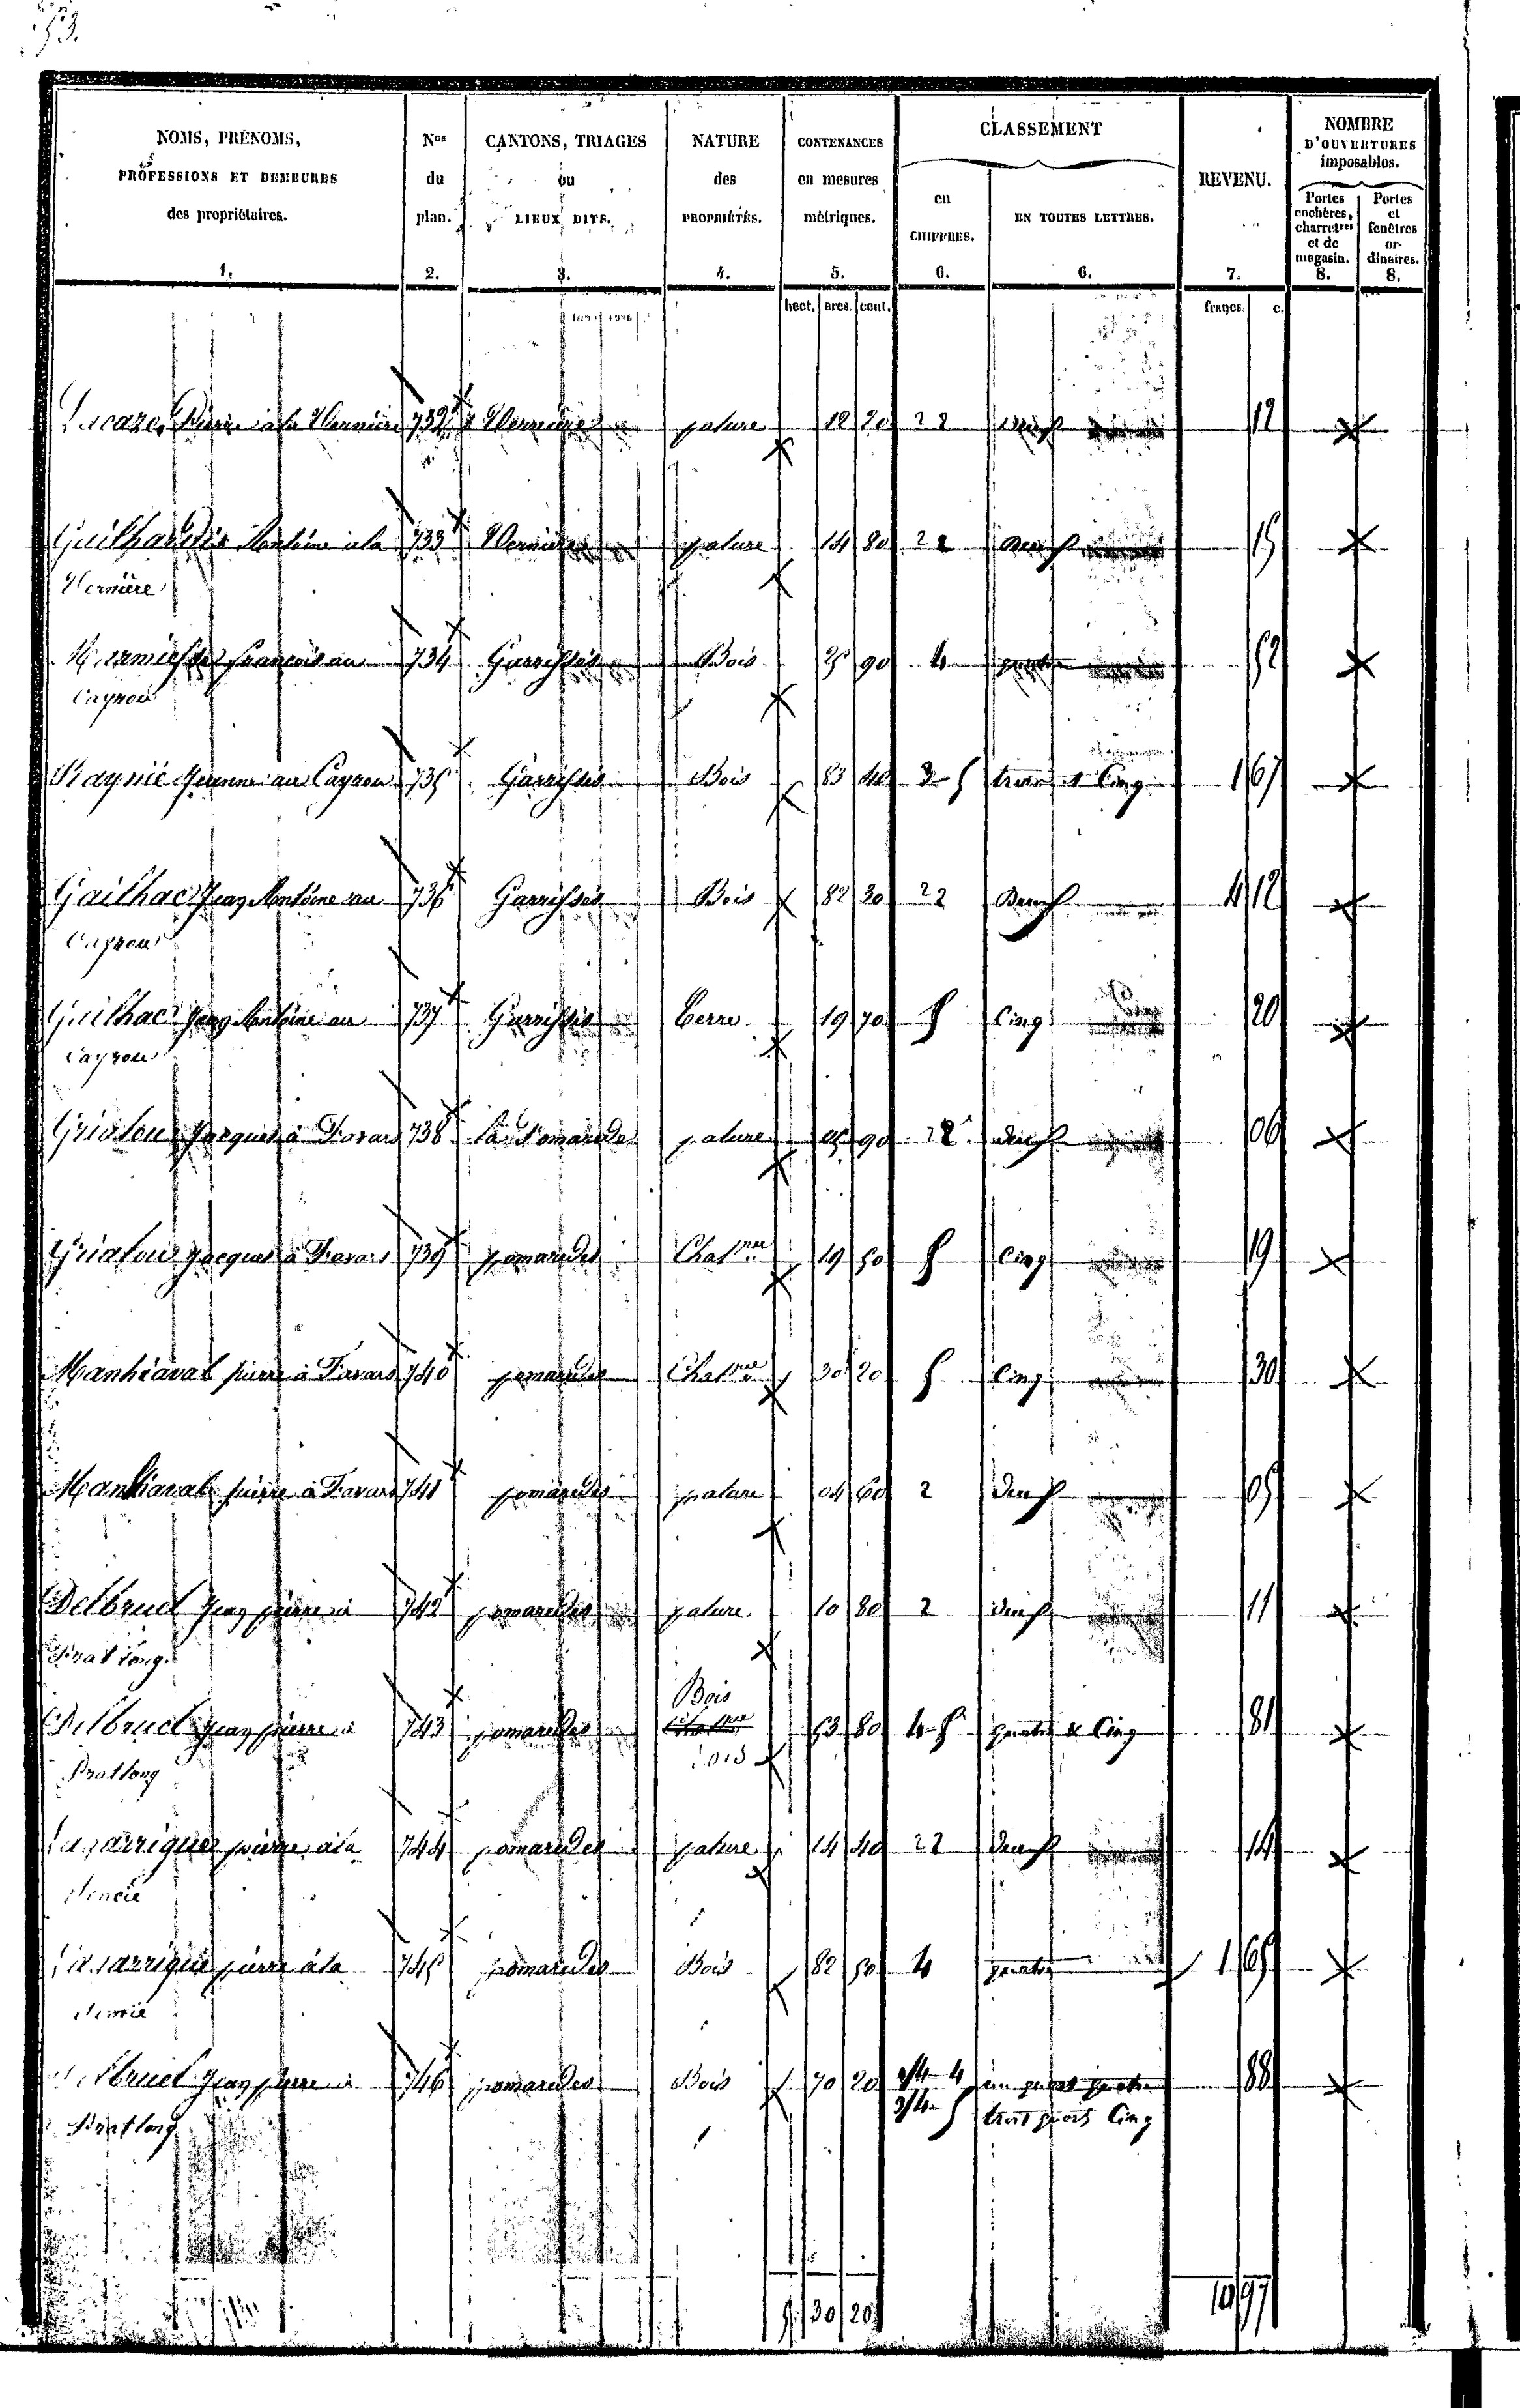 53.
NOMS, PRÉNOMS,
PROFESSIONS ET DEMEURES
des propriétaires.
1.
Nos
du
plan.
2.
CANTONS, TRIAGES
ou
LIEUX DITS.
3.
NATURE
des
PROPRIÉTÉS.
4.
CONTENANCES
en mesures
métriques.
5.
CLASSEMENT
en
CHIFFRES.
6.
EN TOUTES LETTRES.
6.
REVENU.
7.
NOMBRE
D'OUVERTURES
imposables.
Portes
cochères,
charretres
et de
magasin.
8.
Portes
et
fenêtres
or-
dinaires.
8.
hect. ares. cent. francs. c.
Pierre à la Vernière 732 Vernière pature 12 20 22 deux 12
Antoine à la 733 Vernière pature 14 80 22 deux 15
Vernière
françois au 734 Garrisses Bois 25 90 4 quatre 52
Cayrou
Raynié Jeanne au Cayrou 735 Garrisses Bois 83 40 3-5 trois et Cinq 1 67
Gailhac Jean Antoine au 736 Garrisses Bois 82 30 22 Deux 4 12
Cayrou
Gailhac Jean Antoine au 737 Garrisses terre 19 70 5 Cinq 20
Cayrou
Griolou Jacques à Favars 738 la Pomarede pature 05 90 22 deux 06
Griolou Jacques à Favars 739 pomaredes Chatree 19 50 5 Cinq 19
Manhaval pierre à Favars 740 pomaredes Chatree 30 20 5 Cinq 30
Manhaval pierre à Favars 741 pomaredes pature 04 60 2 deux 05
Delbruel Jean pierre à 742 pomaredes pature 10 80 2 deux 11
Prat long.
Bois
Delbruel Jean pierre à 743 pomaredes 53 80 4-5 quatre & Cinq 81
bois
Prat long
Lagarrigue pierre à la 744 pomaredes pature 14 40 22 deux 14
Lagarrigue pierre à la 745 pomaredes Bois 82 50 4 quatre 1 65
Delbruel Jean pierre à 746 pomaredes Bois 70 20 1/4-4 un quart quatre 88
3/4-5 trois quarts Cinq
Prat long
5 30 20 10 97